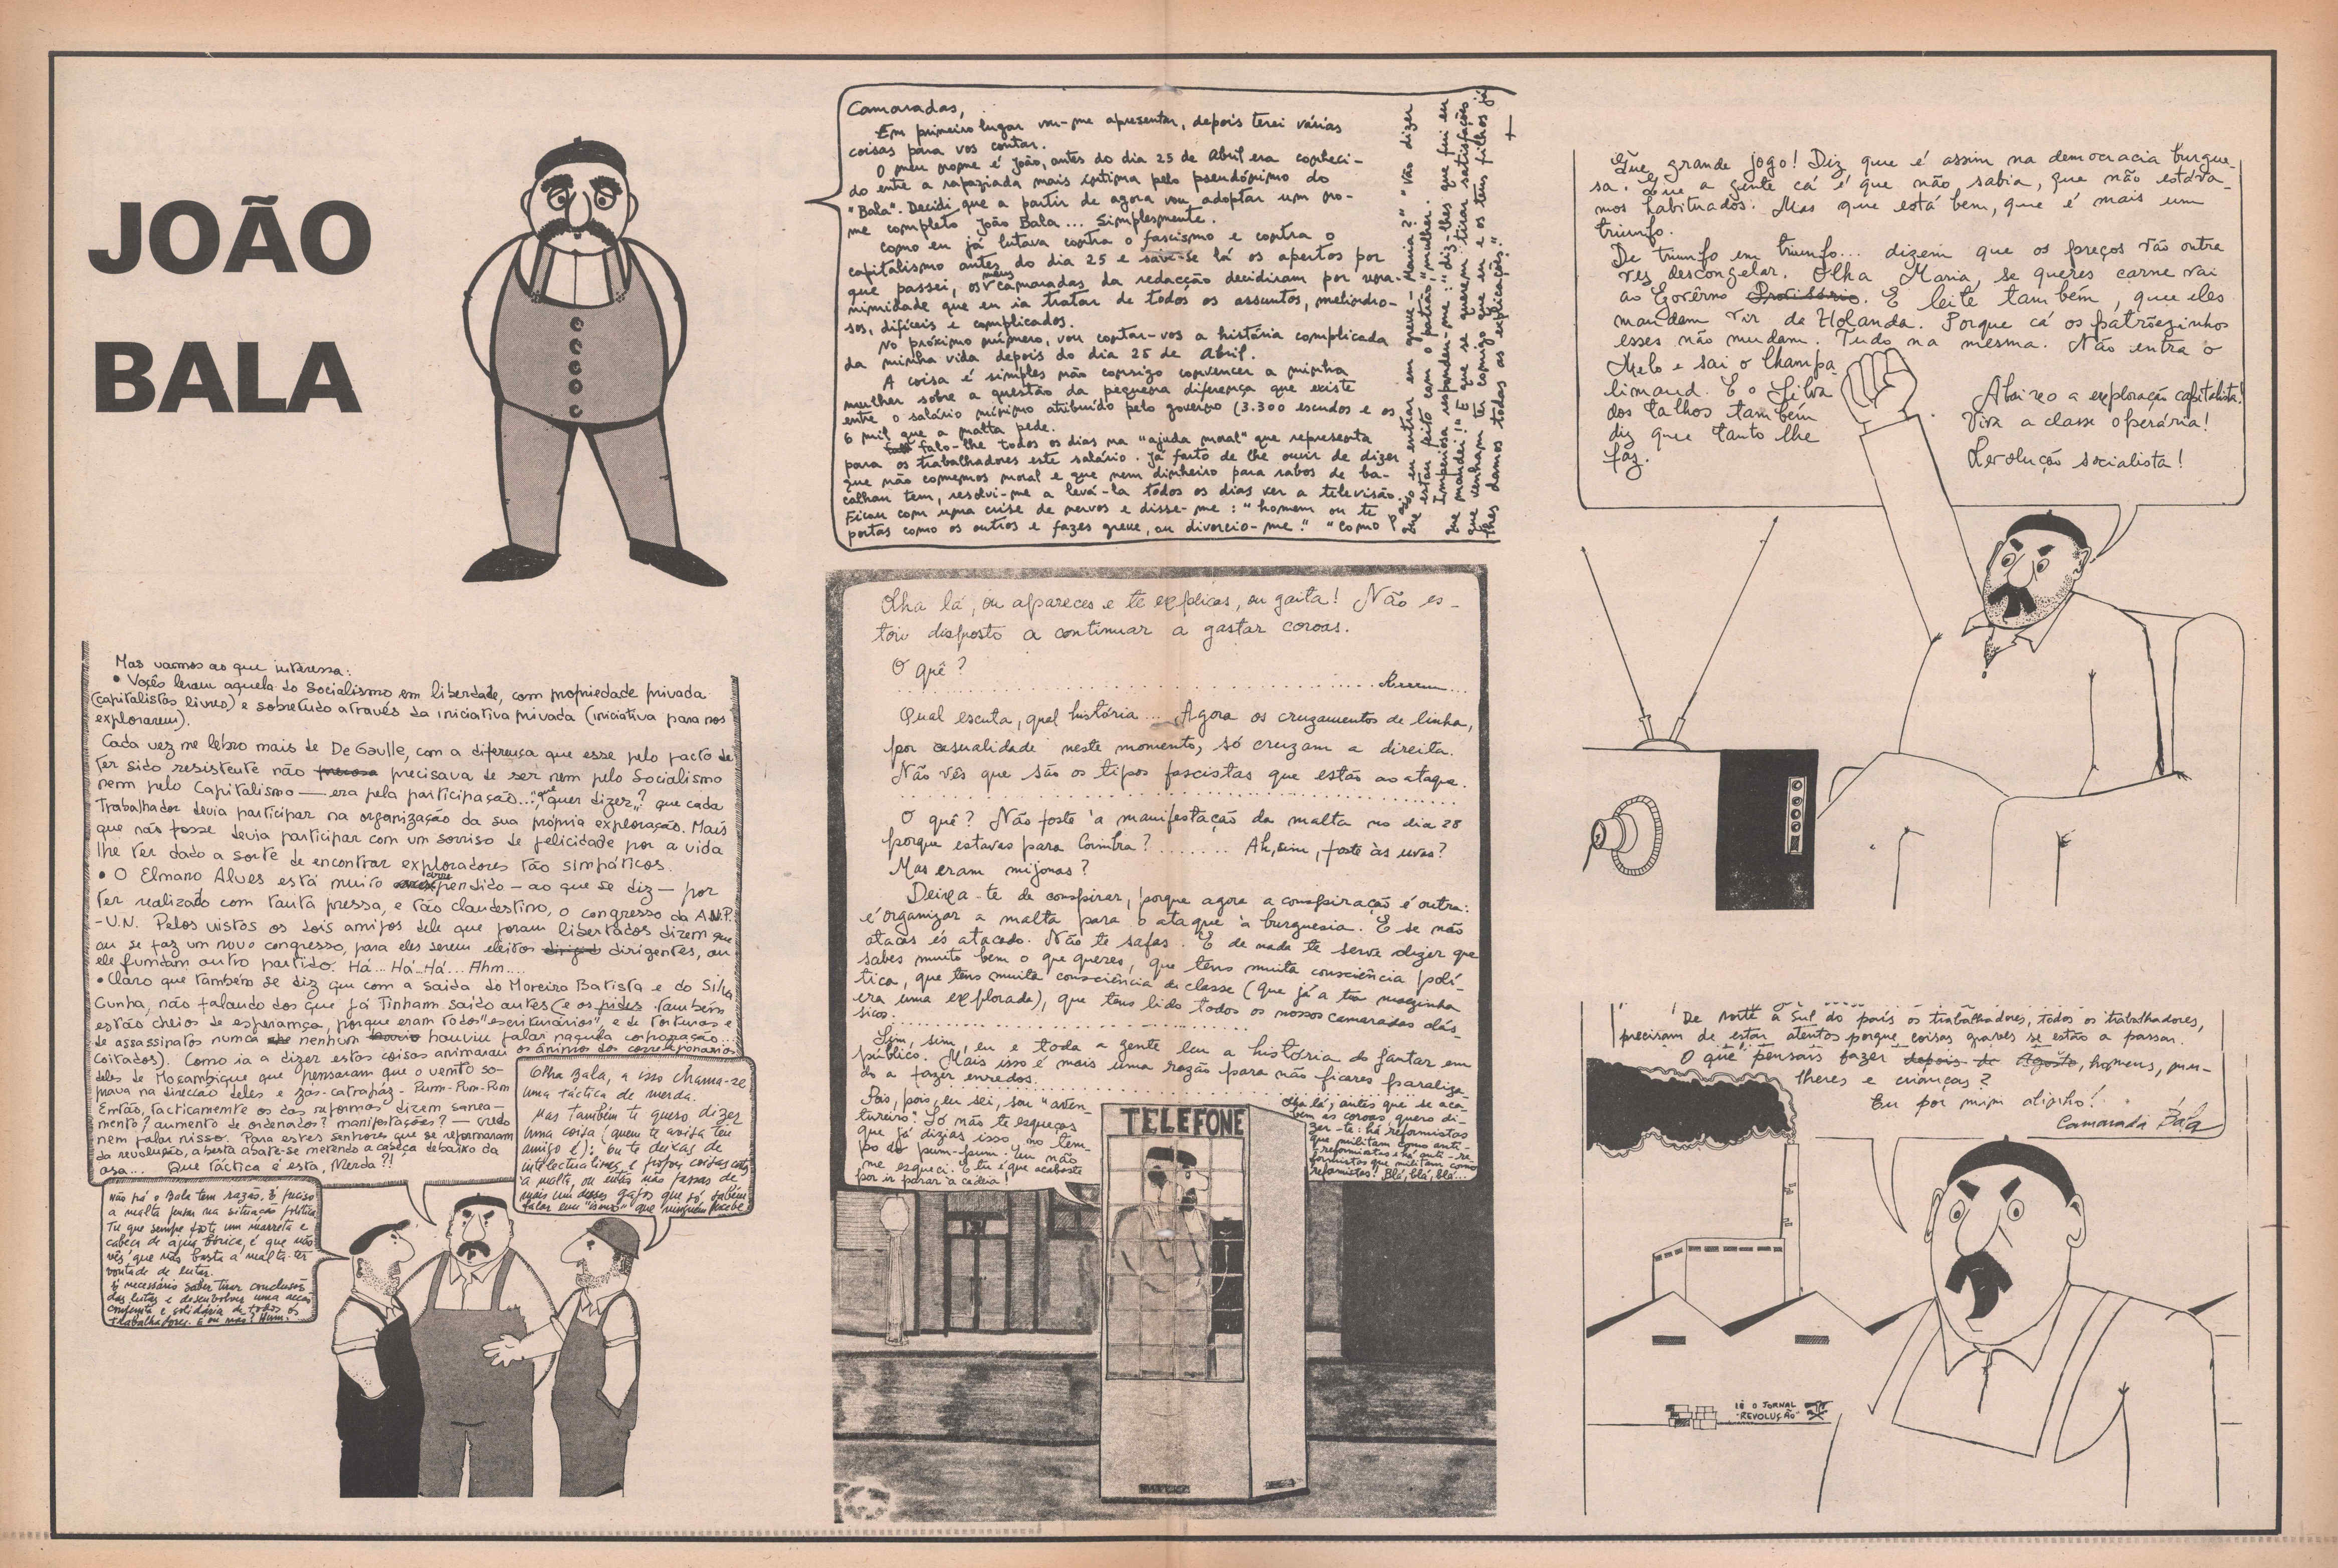 JOÃO
BALA
Camaradas,
Em primeiro lugar vou-me apresentar, depois terei várias
coisas para vos contar.
O meu nome é João, antes do dia 25 de Abril era conheci-
do entre a rapaziada mais íntima pelo pseudónimo do
"Bala". Decidi que a partir de agora vou adoptar um no-
me completo. João Bala... Simplesmente.
Como eu já lutava contra o fascismo e contra o
capitalismo antes do dia 25 e sabe-se lá os apertos por
que passei, os meus camaradas da redacção decidiram por una-
nimidade que eu ia tratar de todos os assuntos, melindro-
sos, difíceis e complicados.
No próximo número, vou contar-vos a história complicada
da minha vida depois do dia 25 de Abril.
A coisa é simples não consigo convencer a minha
mulher sobre a questão da pequena diferença que existe
entre o salário mínimo atribuído pelo governo (3.300 escudos e os
6 mil que a malta pede.
falo-lhe todos os dias na "ajuda moral" que representa
para os trabalhadores este salário. Já farto de lhe ouvir de dizer
que não comemos moral e que nem dinheiro para rabos de ba-
calhau tem, resolvi-me a levá-la todos os dias ver a televisão.
Ficou com uma crise de nervos e disse-me: "homem ou te
portas como os outros e fazes greve, ou divorcio-me." "Como
posso eu entrar em greve - Maria?" "Vão dizer
que estou feito com o patrão, mulher.
Imperiosa respondeu-me: "diz-lhes que fui eu
que mandei!" E que se querem tirar satisfações
que venham ter comigo que eu e os teus filhos já
lhes damos todas as explicações."
Mas vamos ao que interessa:
• Vocês leram aquela do Socialismo em liberdade, com propriedade privada
(capitalistas livres) e sobretudo através da iniciativa privada (iniciativa para nos
explorarem).
Cada vez me lebro mais de De Gaulle, com a diferença que esse pelo facto de
ter sido resistente não precisava de ser nem pelo Socialismo
nem pelo Capitalismo — era pela participação... "que quer dizer"? que cada
Trabalhador devia participar na organização da sua própria exploração. Mais
que não fosse devia participar com um sorriso de felicidade por a vida
lhe ter dado a sorte de encontrar exploradores tão simpáticos.
• O Elmano Alves está muito arrependido — ao que se diz — por
ter realizado com tanta pressa, e tão clandestino, o congresso da A.N.P.
-U.N. Pelos vistos os dois amigos dele que foram libertados dizem que
ou se faz um novo congresso, para eles serem eleitos dirigentes, ou
ele fundam outro partido. Há... Há... Há... Ahm....
• Claro que também se diz que com a saida do Moreira Batista e do Silva
Cunha, não falando dos que já Tinham saido antes (e os pides também
estão cheios de esperança, porque eram todos "escriturários", e de torturas e
de assassinatos nunca nenhum houviu falar naquela corporação...
coitados). Como ia a dizer estas coisas animaram os ânimos dos correligionários
deles de Moçambique que pensaram que o vento so-
prava na direcção deles e zas-catrapáz- Pum-Pum-Pum
Então, tacticamente os das reformas dizem sanea-
mento? aumento de ordenados? manifestações? — tudo
nem falar nisso. Para estes senhores que se reformaram
da revolução, a besta abate-se metendo a cabeça debaixo da
asa... Que Táctica é esta, Merda?!
Olha Bala, a isso chama-se
uma táctica de merda.
Mas também te quero dizer
uma coisa (quem te avisa teu
amigo é): ou te deixas de
intelectualices, e propões coisas
à malta, ou então não passas de
mais um desses gajos que só sabem
falar em "ismos" que ninguém percebe.
Não pá o Bala tem razão. É preciso
a malta pensar na situação política.
Tu que sempre foste um marreta e
cabeça de água bórica, é que não
vês que não basta a malta ter
vontade de lutar.
É necessário saber tirar conclusões
das lutas e desenvolver uma acção
conjunta e solidária de todos os
trabalhadores. É ou não? Hum!
Olha lá, ou apareces e te explicas, ou gaita! Não es-
tou disposto a continuar a gastar coroas.
O quê?
Qual escuta, qual história... Agora os cruzamentos de linha,
por casualidade neste momento, só cruzam a direita.
Não vês que são os tipos fascistas que estão ao ataque.
O quê? Não foste à manifestação da malta no dia 28
porque estavas para Coimbra?....... Ah, sim, foste às uvas?
Mas eram mijonas?
Deixa-te de conspirar, porque agora a conspiração é outra:
é organizar a malta para o ataque à burguesia. E se não
atacas és atacado. Não te safas. E de nada te serve dizer que
sabes muito bem o que queres, que tens muita consciência polí-
tica, que tens muita consciência de classe (que já a tua mãezinha
era uma explorada), que tens lido todos os nossos camaradas clás-
sicos.
Sim, sim, eu e toda a gente leu a história do jantar em
público. Mais isso é mais uma razão para não ficares paraliza-
do a fazer enredos.
Pois, pois, eu sei, sou "aven-
tureiro". Só não te esqueças
que já dizias isso no tem-
po do pum-pum. Eu não
me esqueci. E tu é que acabaste
por ir parar à cadeia!
Olha lá, antes que se aca-
bem as coroas quero di-
zer-te: há reformistas
que militam como anti-
reformistas e há anti-re-
formistas que militam como
reformistas! Blá, blá, blá...
TELEFONE
Que grande jogo! Diz que é assim na democracia burgue-
sa. Que a gente cá é que não sabia, que não estáva-
mos habituados. Mas que está bem, que é mais um
triunfo.
De triunfo em triunfo... dizem que os preços vão outra
vez descongelar. Olha Maria, se queres carne vai
ao Govêrno Provisório. E leite também, que eles
mandam vir da Holanda. Porque cá os patrõezinhos
esses não mudam. Tudo na mesma. Não entra o
Melo e sai o Champa
limaud. E o Silva
dos talhos também
diz que tanto lhe
faz.
Abaixo a exploração capitalista!
Viva a classe operária!
Revolução socialista!
De norte a Sul do país os trabalhadores, todos os trabalhadores,
precisam de estar atentos porque coisas graves se estão a passar.
O que pensais fazer depois de Agosto, homens, mu-
lheres e crianças?
Eu por mim alinho!
Camarada Bala
LÊ O JORNAL
"REVOLUÇÃO"